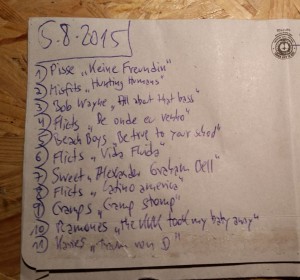 5.8.2015
1) Pisse "Keine Freundin"
2) Misfits "Hunting Humans"
3) Bob Wayne "All about that bass"
4) Fliets "De onde eu venho"
5) Beach Boys "Be true to your school"
6) Fliets "Vida Fluida"
7) Sweet "Alexander Graham Bell"
8) Fliets "Latino america"
9) Cramps "Cramp stomp"
10) Ramones "the KKK took my baby away"
11) "Traum von D"